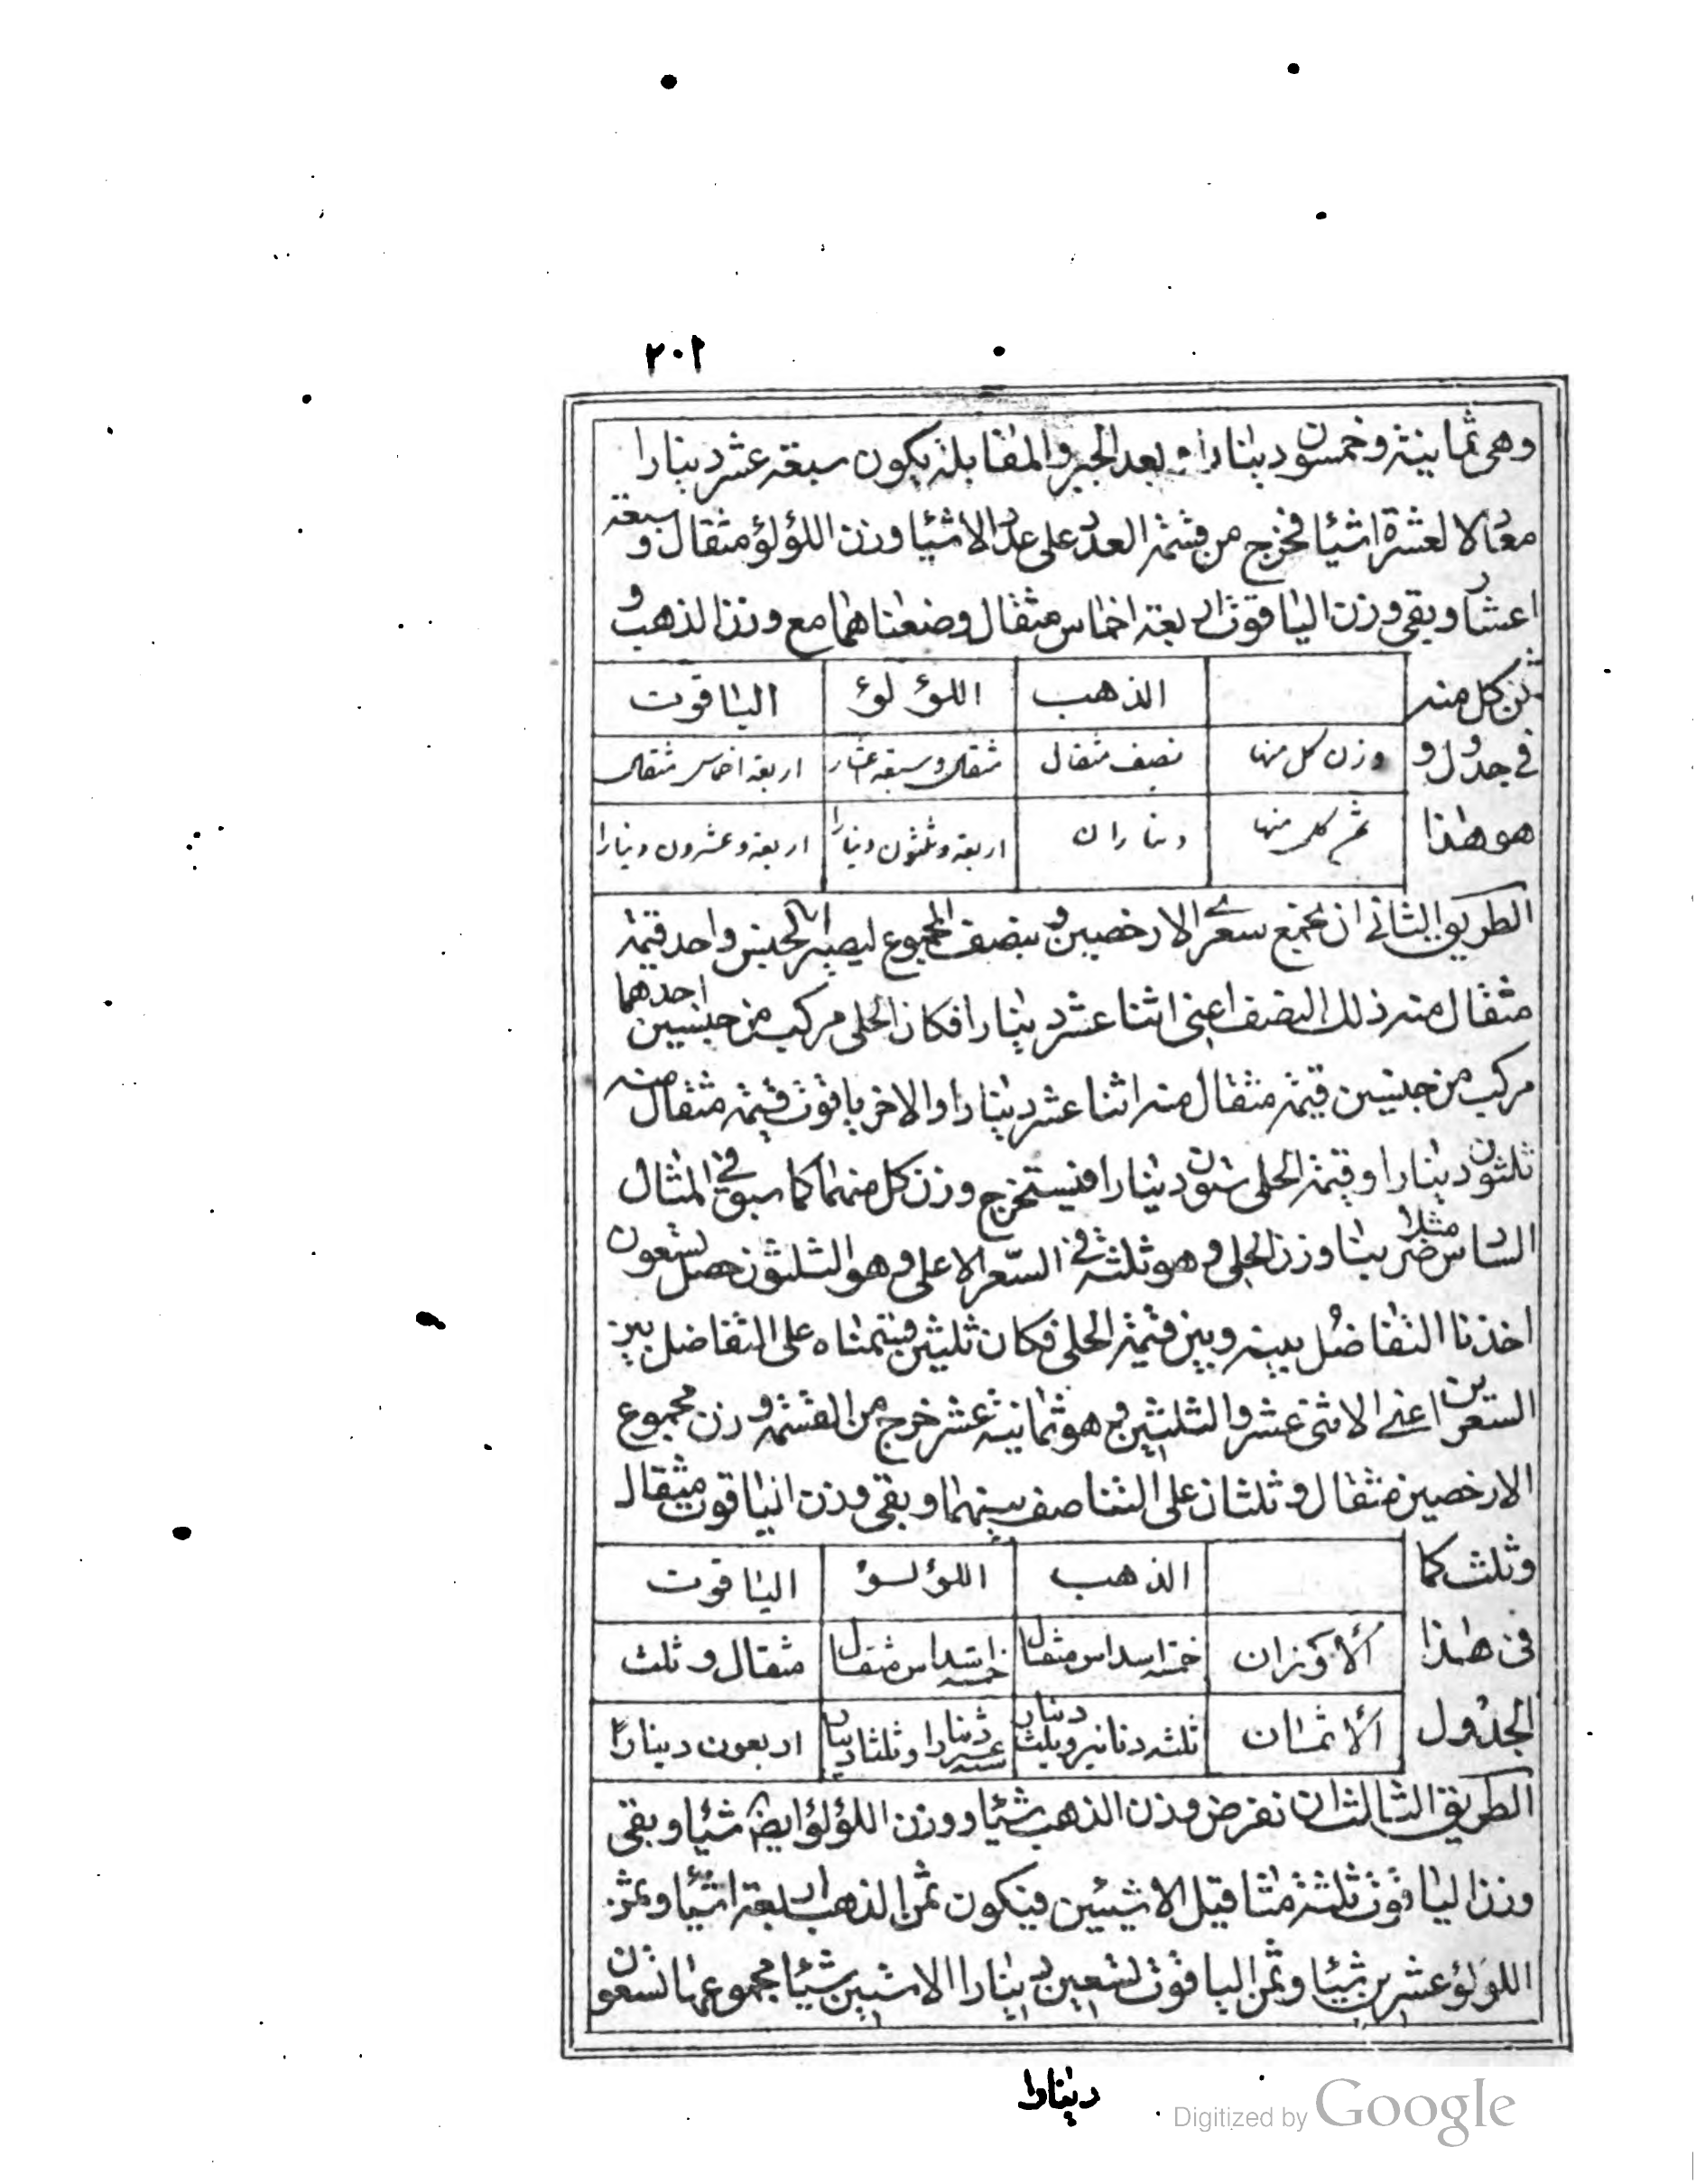 ٢٠١
وهى ثمانية وخمسون دينارا و بعد الجبر والمقابلة يكون سبعة عشر دينارا
معادلا لعشرة اشيا فخرج من قسمة العدد على عدد الاشيا وزن اللؤلؤ مثقال و سبعة
اعشار وبقى وزن الياقوت اربعة اخماس مثقال وضعناهما مع وزن الذهب و
ثمن كل منه
فى جدول و
هو هذا
الذهب اللؤلؤ الياقوت
وزن كل منها نصف مثقال مثقال وسبعة اعشار اربعة اخماس مثقال
ثمن كل منها ديناران اربعة وثلثون دينارا اربعة وعشرون دينارا
الطريق الثانى ان يجمع سعرى الارخصين و ينصف المجموع ليصير الجنس واحد قيمة
مثقال منه ذلك النصف اعنى اثنا عشر دينارا فكان الحلى مركب من جنسين احدهما
مركب من جنسين قيمة مثقال منه اثنا عشر دينارا والاخر ياقوت قيمة مثقال منه
ثلثون دينارا وقيمة الحلى ستون دينارا فيستخرج وزن كل منهما كما سبق فى المثال
السادس مثلا ضربنا وزن الحلى و هو ثلثة فى السّعر الاعلى وهو الثلثون حصل تسعون
اخذنا التفاضل بينه وبين قيمة الحلى فكان ثلثين قسمناه على التفاضل بين
السعرين اعنى الاثنى عشر والثلثين و هو ثمانية عشر خرج من القسمة وزن مجموع
الارخصين مثقال و ثلثان على التناصف بينهما وبقى وزن الياقوت مثقال
وثلث كما
فى هذا
الجدول
الذهب اللؤلؤ الياقوت
الاوزان خمسة اسداس مثقال خمسة اسداس مثقال مثقال و ثلث
الاثمان ثلثه دنانير وثلث دينار ستة عشر دينارا وثلثا دينار اربعون دينارًا
الطريق الثالث ان نفرض وزن الذهب شيئا ووزن اللؤلؤ ايضا شيئا و بقى
وزن الياقوت ثلثة مثاقيل الا شيئين فيكون ثمن الذهب اربعة اشيا وثمن
اللؤلؤ عشرين شيئا وثمن الياقوت تسعين دينارا الا ستين شيئا مجموعها تسعون
دينارا
Digitized by Google